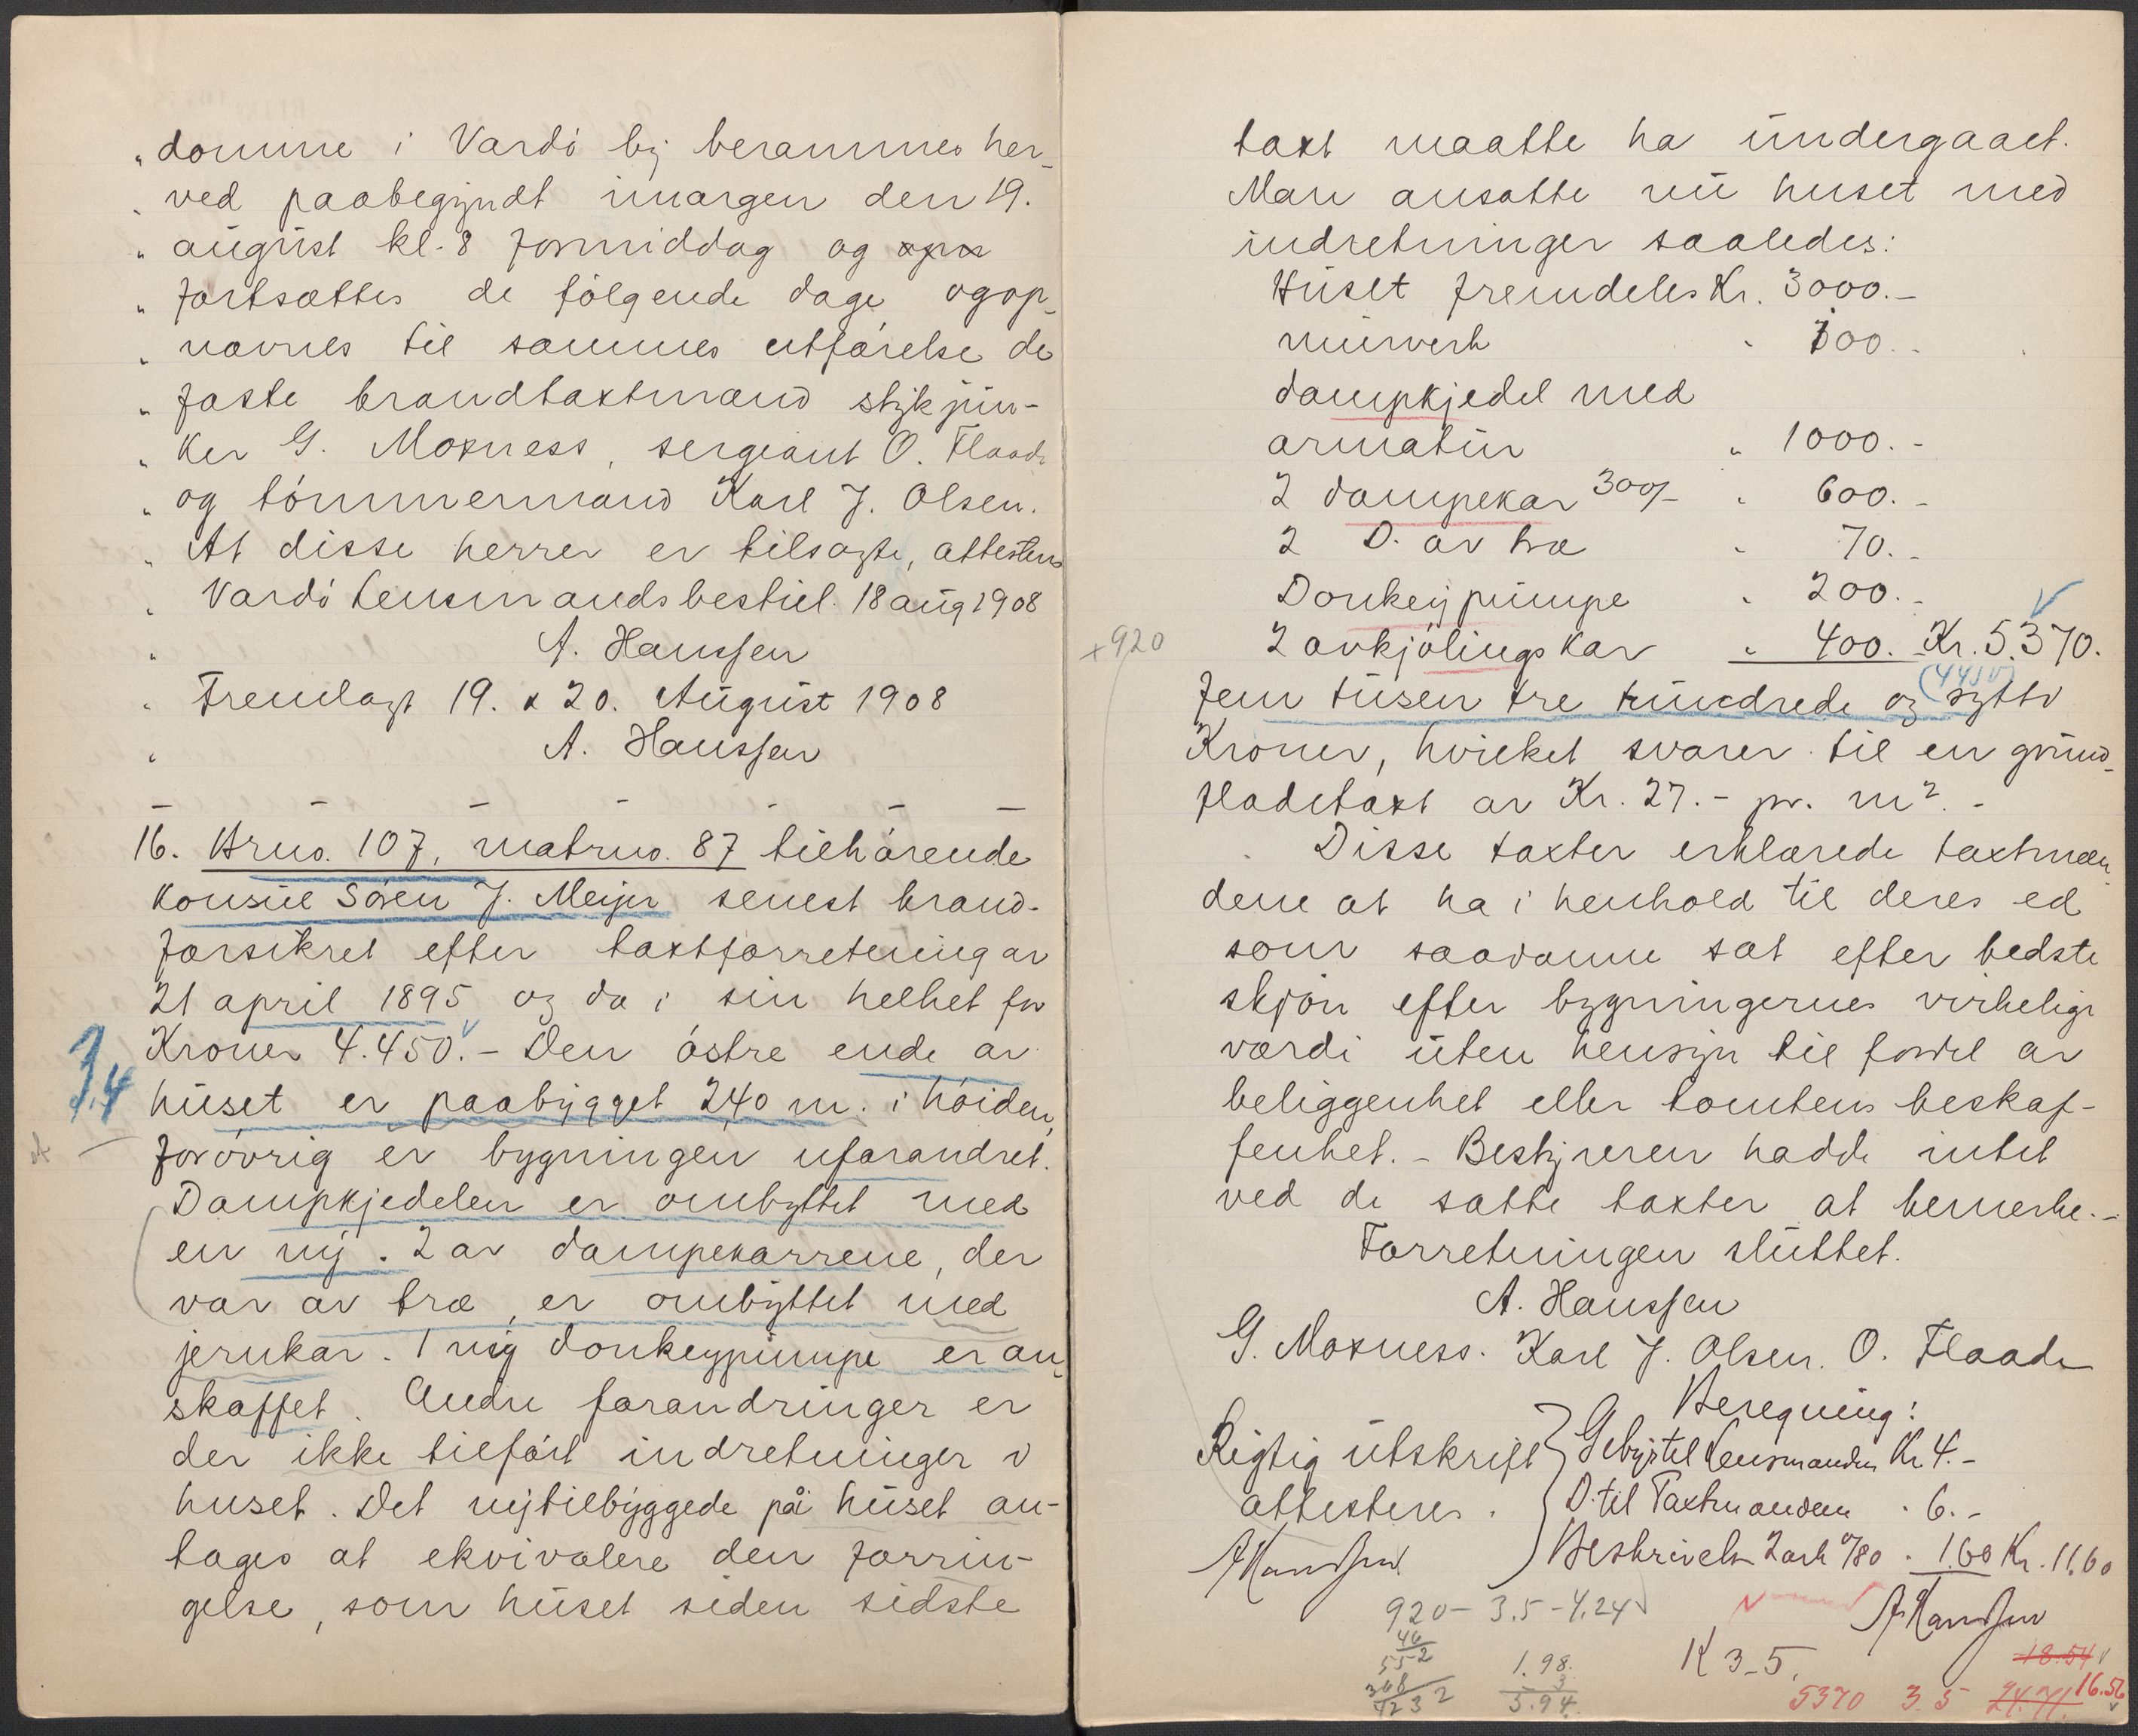 „ domme i Vardö by berammes her-
„ ved paabegyndt imorgen den 19.
„ august kl. 8 formiddag og
„ fortsættes de følgende dage, og op-
„ nævnes til sammes utförelse de
„ faste brandtaxtmænd stykjun-
„ ker G. Moxness, sergeant O. Flaade
„ og tömmermand Karl J. Olsen.
„ At disse herrer er tilsagte, attesteres
„ Vardö Lensmandsbestil. 18 aug 1908
„ A. Hanssen
„ Fremlagt 19. & 20. August 1908
„ A. Hanssen
16. Brno. 107, matrno. 87 tilhörende
konsul Sören J. Meyer senest brand-
forsikret efter taxtforretning av
21 april 1895 og da i sin helhet for
Kroner 4.450.- Den östre ende av
3,4
huset er paabygget 2,40 m. i höiden,
forövrig er bygningen uforandret.
Dampkjedelen er ombyttet med
en ny. 2 av dampekarrene, der
var av træ, er ombyttet med
jernkar. 1 ny donkeypumpe er an-
skaffet. Andre forandringer er
der ikke tilfört indretninger v
huset. Det nytilbyggede på huset an-
tages at ekvivalere den forrin-
gelse, som huset siden sidste
taxt maatte ha undergaaet.
Man ansatte nu huset med
indretninger saaledes:
Huset fremdeles Kr. 3000.-
murverk " 100.-
dampkjedel med
armatur " 1000.-
2 dampekar 300/- " 600.-
2 D. av træ " 70.-
Donkeypumpe " 200.-
+920 2 avkjölingskar " 400. Kr. 5.370.
(4450)
fem tusen tre hundrede og sytti
Kroner, hvilket svarer til en grund-
fladetaxt av Kr. 27.- pr. m².-
Disse taxter erklærede taxtmæn-
dene at ha i henhold til deres ed
som saadanne sat efter bedste
skjön efter bygningernes virkelige
værdi uten hensyn til fordel av
beliggenhet eller tomtens beskaf-
fenhet.- Bestyreren hadde intet
ved de satte taxter at bemerke.-
Forretningen sluttet.
A. Hanssen
G. Moxness. Karl J. Olsen. O. Flaade
Beregning:
Rigtig utskrift } Gebyr til Lensmanden Kr. 4.-
attesteres. D. til Taxtmændene " 6.-
AHanssen Beskrivelse 2 ark a/80 " 1.60 Kr. 11.60
AHanssen
920 - 3.5 - 4.24
46
552
368
4232
1.98.
3
5.94.
K 3-5.
18.54
5370 3.5 24.71. 16.56